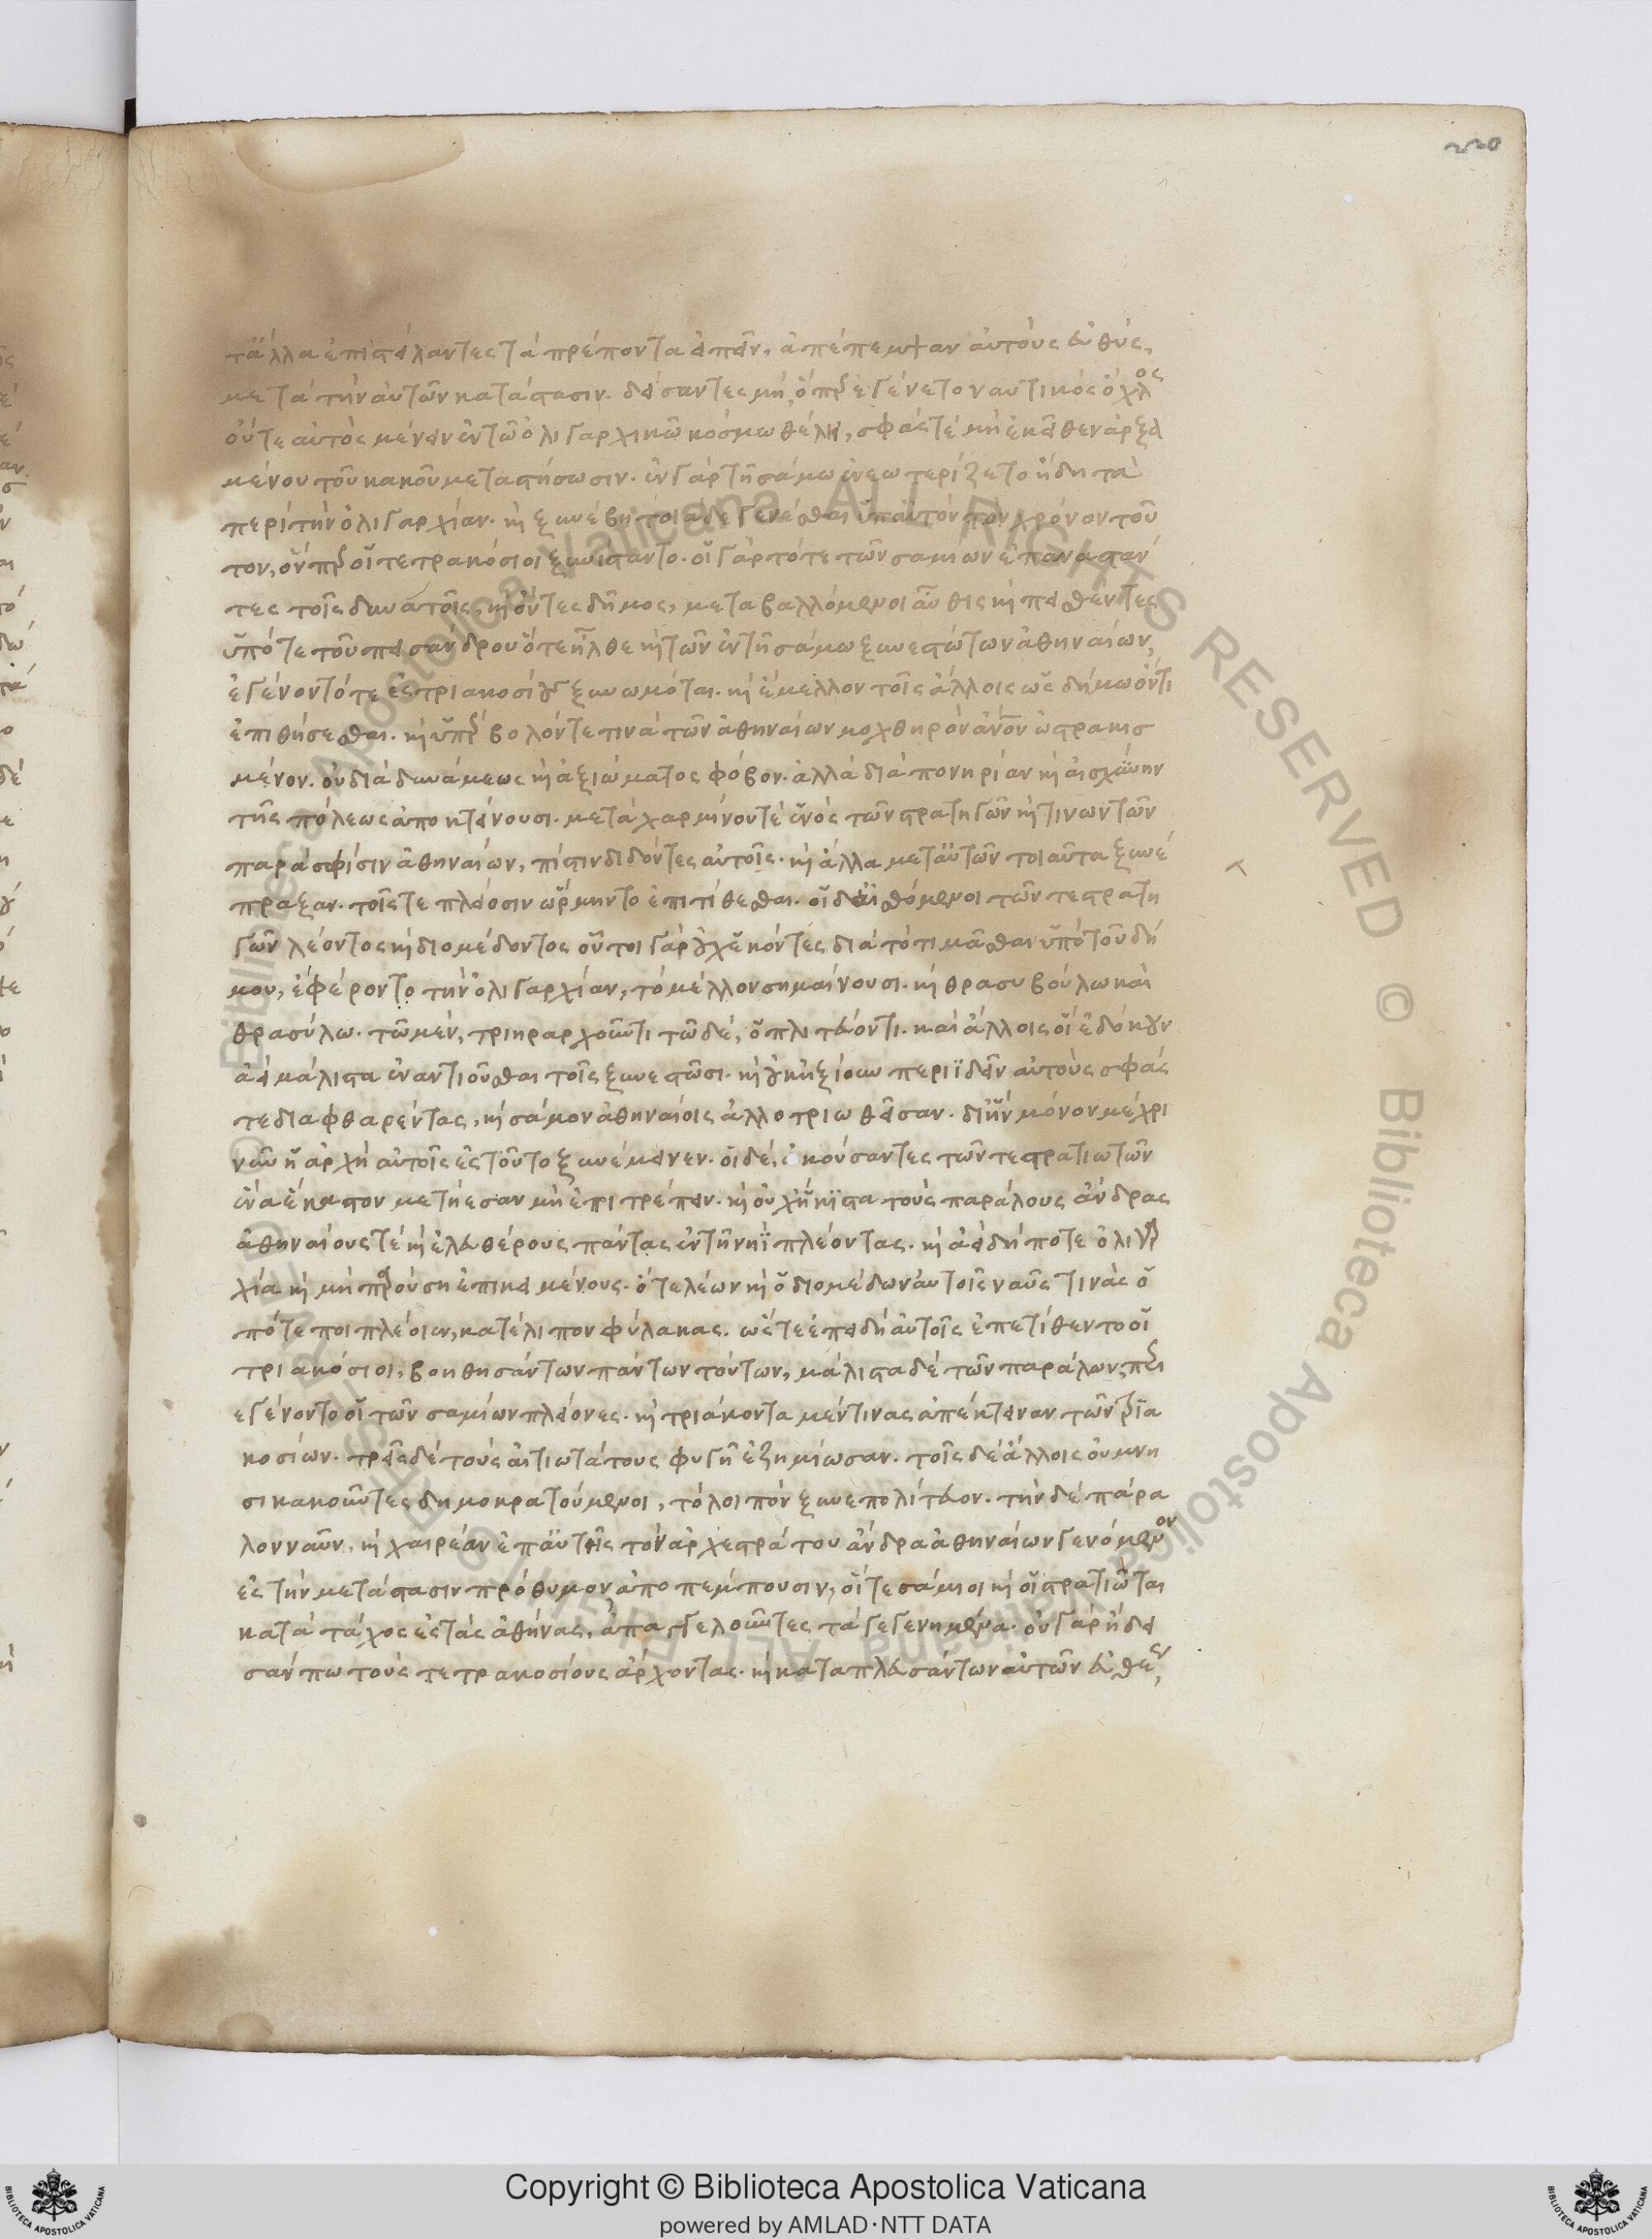 220
τἄλλα ἐπιστείλαντες τὰ πρέποντα εἰπεῖν, ἀπέπεμψαν αὐτοὺς εὐθὺς,
μετὰ τὴν αὐτῶν κατάστασιν. δείσαντες μὴ, ὅπερ ἐγένετο ναυτικὸς ὄχλος
οὔτε αὐτὸς μένειν ἐν τῶ ὀλιγαρχικῶ κόσμω θέλη, σφᾶς τὲ μὴ ἐκεῖθεν ἀρξα
μένου τοῦ κακοῦ μεταστήσωσιν. ἐν γὰρ τῆ σάμω ἐνεωτερίζετο ἤδη τὰ
περὶ τὴν ὀλιγαρχίαν. καὶ ξυνέβη τοιάδε γενέσθαι ὑπ' αὐτὸν τὸν χρόνον τοῦ
τον, ὅνπερ οἱ τετρακόσιοι ξυνίσταντο. οἱ γὰρ τότε τῶν σαμίων ἐπαναστάν
τες τοῖς δυνατοῖς, καὶ ὄντες δῆμος, μεταβαλλόμενοι αὖθις καὶ πεισθέντες
ὑπό τε τοῦ πεισάνδρου ὅτε ἦλθε καὶ τῶν ἐν τῆ σάμω ξυνεστώτων ἀθηναίων,
ἐγένοντό τε ἐς τριακοσίους ξυνωμόται. καὶ ἔμελλον τοῖς ἄλλοις ὡς δήμω ὄντι
ἐπιθήσεσθαι. καὶ ὑπέρβολόν τέ τινα τῶν ἀθηναίων μοχθηρὸν ἄνον ὠστρακισ
μένον. οὐ διὰ δυνάμεως καὶ ἀξιώματος φόβον. ἀλλὰ διὰ πονηρίαν καὶ αἰσχύνην
τῆς πόλεως ἀποκτείνουσι. μετὰ χαρμίνου τὲ ἑνὸς τῶν στρατηγῶν καί τινων τῶν
παρὰ σφίσιν ἀθηναίων, πίστιν διδόντες αὐτοῖς. καὶ ἄλλα μετ' αὐτῶν τοιαῦτα ξυνέ
πραξαν. τοῖς τε πλείοσιν ὥρμηντο ἐπιτίθεσθαι. οἱ δὲ αἰσθόμενοι τῶν τε στρατη
γῶν λέοντος καὶ διομέδοντος οὗτοι γὰρ οὐχ' ἑκόντες διὰ τὸ τιμᾶσθαι ὑπὸ τοῦ δή
μου, ἔφερον τὸ τὴν ὀλιγαρχίαν, τὸ μέλλον σημαίνουσι. καὶ θρασυβούλω καὶ
θρασύλω. τῶ μὲν, τριηραρχοῦντι τῶ δὲ, ὁπλιτεύοντι. καὶ ἄλλοις οἳ ἐδόκουν
ἀεὶ μάλιστα ἐναντιοῦσθαι τοῖς ξυνεστῶσι. καὶ οὐκ ἠξίουν περιϊδεῖν αὐτοὺς σφᾶς
τε διαφθαρέντας, καὶ σάμον ἀθηναίοις ἀλλοτριωθεῖσαν. δι' ἣν μόνον μέχρι
νῦν ἡ ἀρχὴ αὐτοῖς ἐς τοῦτο ξυνέμεινεν. οἱ δὲ, ἀκούσαντες τῶν τε στρατιωτῶν
ἕνα ἕκαστον μετήεσαν μὴ ἐπιτρέπειν. καὶ οὐχ' ἥκιστα τοὺς παράλους ἄνδρας
ἀθηναίους τὲ καὶ ἐλευθέρους πάντας ἐν τῆ νηῒ πλέοντας. καὶ ἀεὶ δήποτε ὀλιγαρ
χία καὶ μὴ παρούση ἐπικειμένους. ὅ τε λέων καὶ ὁ διομέδων αὐτοῖς ναῦς τινὰς ὁ
πότε ποι πλέοιεν, κατέλιπον φύλακας. ὥστε ἐπειδὴ αὐτοῖς ἐπετίθεντο οἱ
τριακόσιοι, βοηθησάντων πάντων τούτων, μάλιστα δὲ τῶν παράλων, περι
εγένοντο οἱ τῶν σαμίων πλείονες. καὶ τριάκοντα μέν τινας ἀπέκτειναν τῶν τρια
κοσίων. τρεῖς δὲ τοὺς αἰτιωτάτους φυγῆ ἐζημίωσαν. τοῖς δὲ ἄλλοις οὐ μνη
σικακοῦντες δημοκρατούμενοι, τὸ λοιπὸν ξυνεπολίτευον. τὴν δὲ πάρα
λον ναῦν, καὶ χαιρέαν ἐπ' αὐτῆς τὸν ἀρχεστράτου ἄνδρα ἀθηναίων γενόμενον
ἐς τὴν μετάστασιν πρόθυμον, ἀποπέμπουσιν, οἵ τε σάμιοι καὶ οἱ στρατιῶται
κατὰ τάχος ἐς τὰς ἀθήνας, ἀπαγγελοῦντες τὰ γεγενημένα. οὐ γὰρ ἤδε
σάν πω τοὺς τετρακοσίους ἄρχοντας. καὶ καταπλευσάντων αὐτῶν εὐθέως,
Copyright © Biblioteca Apostolica Vaticana
powered by AMLAD·NTT DATA